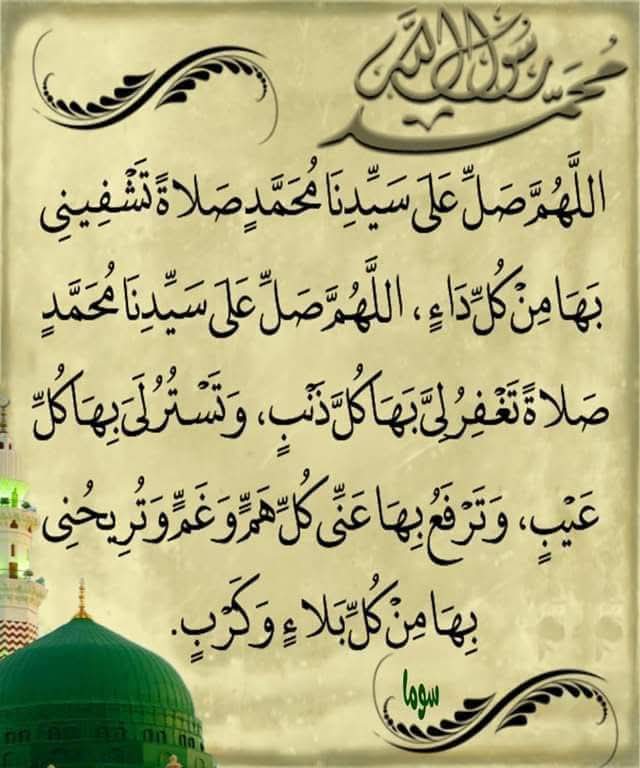 محمد رسول الله
اللَّهُمَّ صَلِّ عَلَى سَيِّدِنَا مُحَمَّدٍ صَلاةً تَشْفِينِى
بَهَا مِنْ كُلِّ دَاءٍ، اللَّهُمَّ صَلِّ عَلَى سَيِّدِنَا مُحَمَّدٍ
صَلاةً تَغْفِرُ لِىَّ بَهَا كُلَّ ذَنْبٍ، وَتَسْتُرُ لَىَ بِهَا كُلِّ
عَيْبٍ، وَتَرْفَعُ بِهَا عَنِّى كُلِّ هَمٍّ وَغَمٍّ وَتُرِيحُنِى
بِهَا مِنْ كُلِّ بَلاءٍ وَكَرْبٍ.
سوما